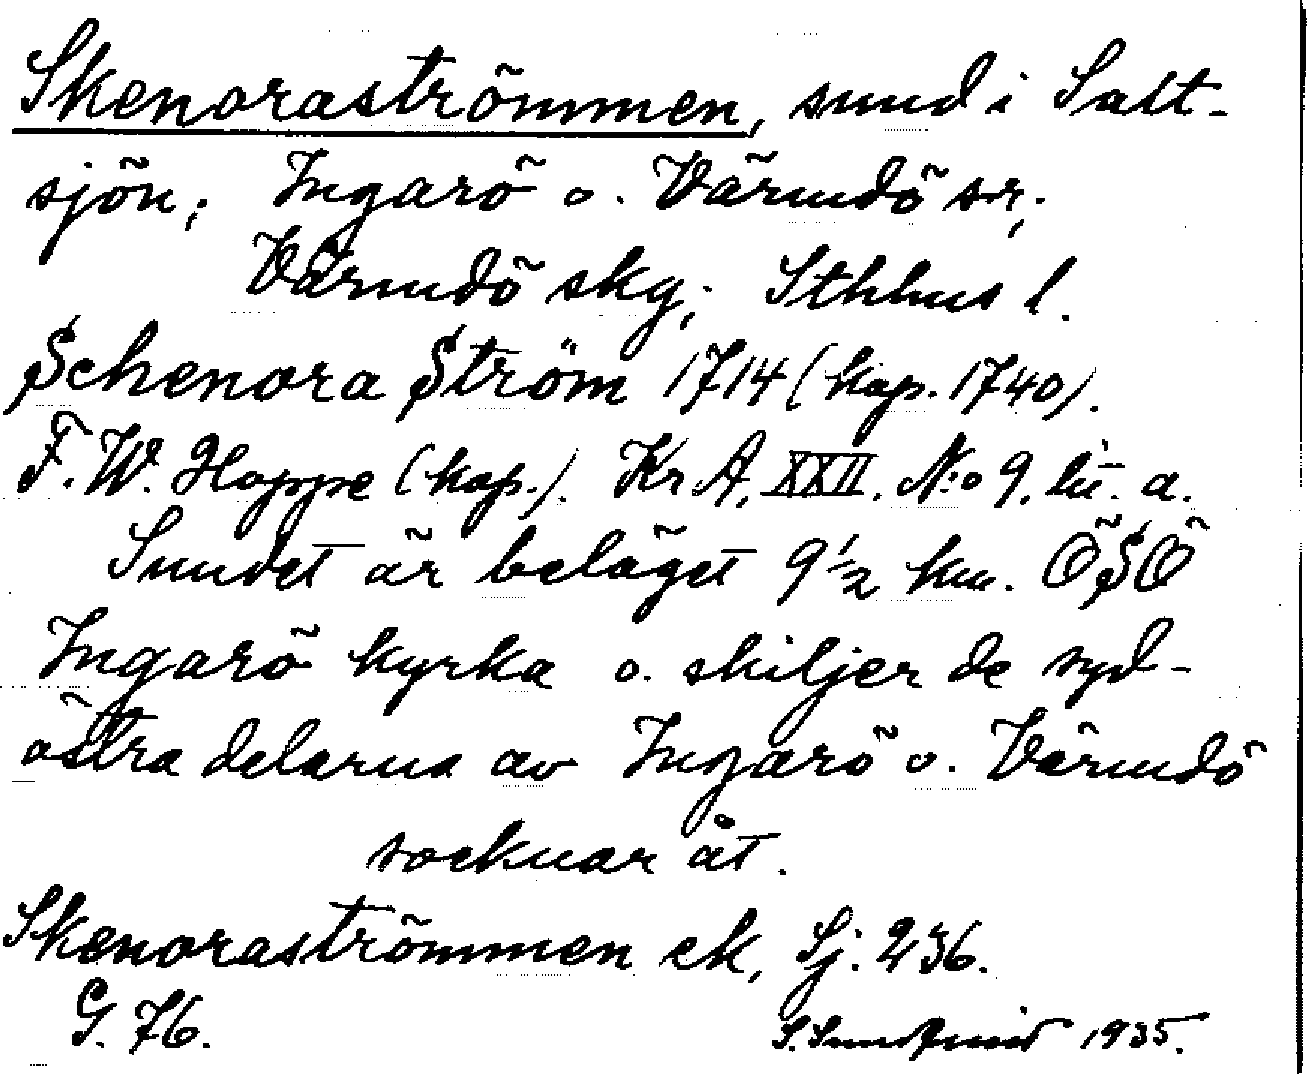 Skenoraströmmen, sund i Salt-
sjön; Ingarö o. Värmdö snr;
Värmdö skg; Sthlms l.
Schenora Ström 1714 (kop. 1740).
F. W. Hoppe (kop.). Kr A, XXII. N:o 9. lit. a.
Sundet är beläget 9 1/2 km. ÖSÖ
Ingarö kyrka o. skiljer de syd-
östra delarna av Ingarö o. Värmdö
socknar åt.
Skenoraströmmen ek, Sj. 236.
G. 76.
S. Sundqvist 1935.